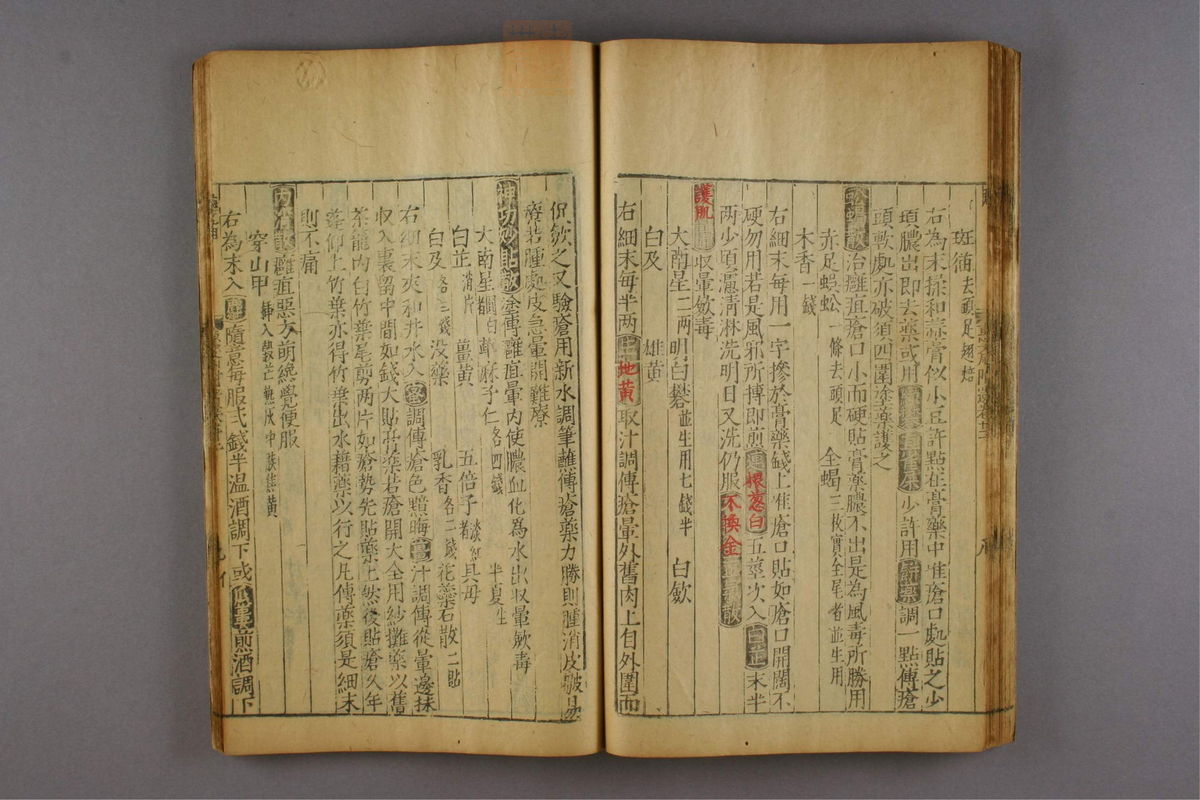 斑猫去頭足翅焙
右為末採和蒜膏似小豆許點在膏藥中准瘡口處貼之少
頃膿出即去藥或用少許用調一點傅瘡
頭軟處亦破須四圍塗藥護之
蜈蝎散治癰疽瘡口小而硬貼膏藥膿不出是為風毒所勝用
赤足蜈蚣一條去頭足 全蝎三枚實全尾者並生用
木香一錢
右細末每用一字摻於膏藥餞上准瘡口貼如瘡口開闊不
硬勿用若是風邪所搏即煎連根葱白五莖次入白芷末半
兩少頃濾清淋洗明日又洗仍服不換金正氣散
護肌 收暈斂毒
大南星二兩 明白礬並生用七錢半 白斂
白及 雄黄
右細末每半两生地黄取汁調傅瘡暈外舊肉上自外圍而
促斂之又驗瘡用新水調筆蘸薄瘡藥力勝則腫消皮皺易
療若腫處皮急暈開難療
神功妙貼散塗傅癰疽暈内使膿血化為水出収暈斂毒
大南星圓白 草麻子仁各四錢 半夏生
白芷消片 薑黄 五倍子淡紅者 貝母
白及各三錢 没藥 乳香各二錢 花藥石散二貼
右細末夾和井水入蜜調傅瘡色黯晦薑汁調傅從暈邊抹
収入裏留中間如錢大貼膏藥若瘡開大全用紗攤藥以舊
茶籠内白竹葉尾剪两片如瘡勢先貼藥上然後貼瘡久年
蓬仰上竹葉亦得竹葉出水藉藥以行之凡傅藥須是細末
則不痛
内消散癰疽惡方萌纔覺便服
穿山甲插入穀芒熱灰中簇焦黄
右為末入隨意每服弍錢半温酒調下或瓜蔞煎酒調下